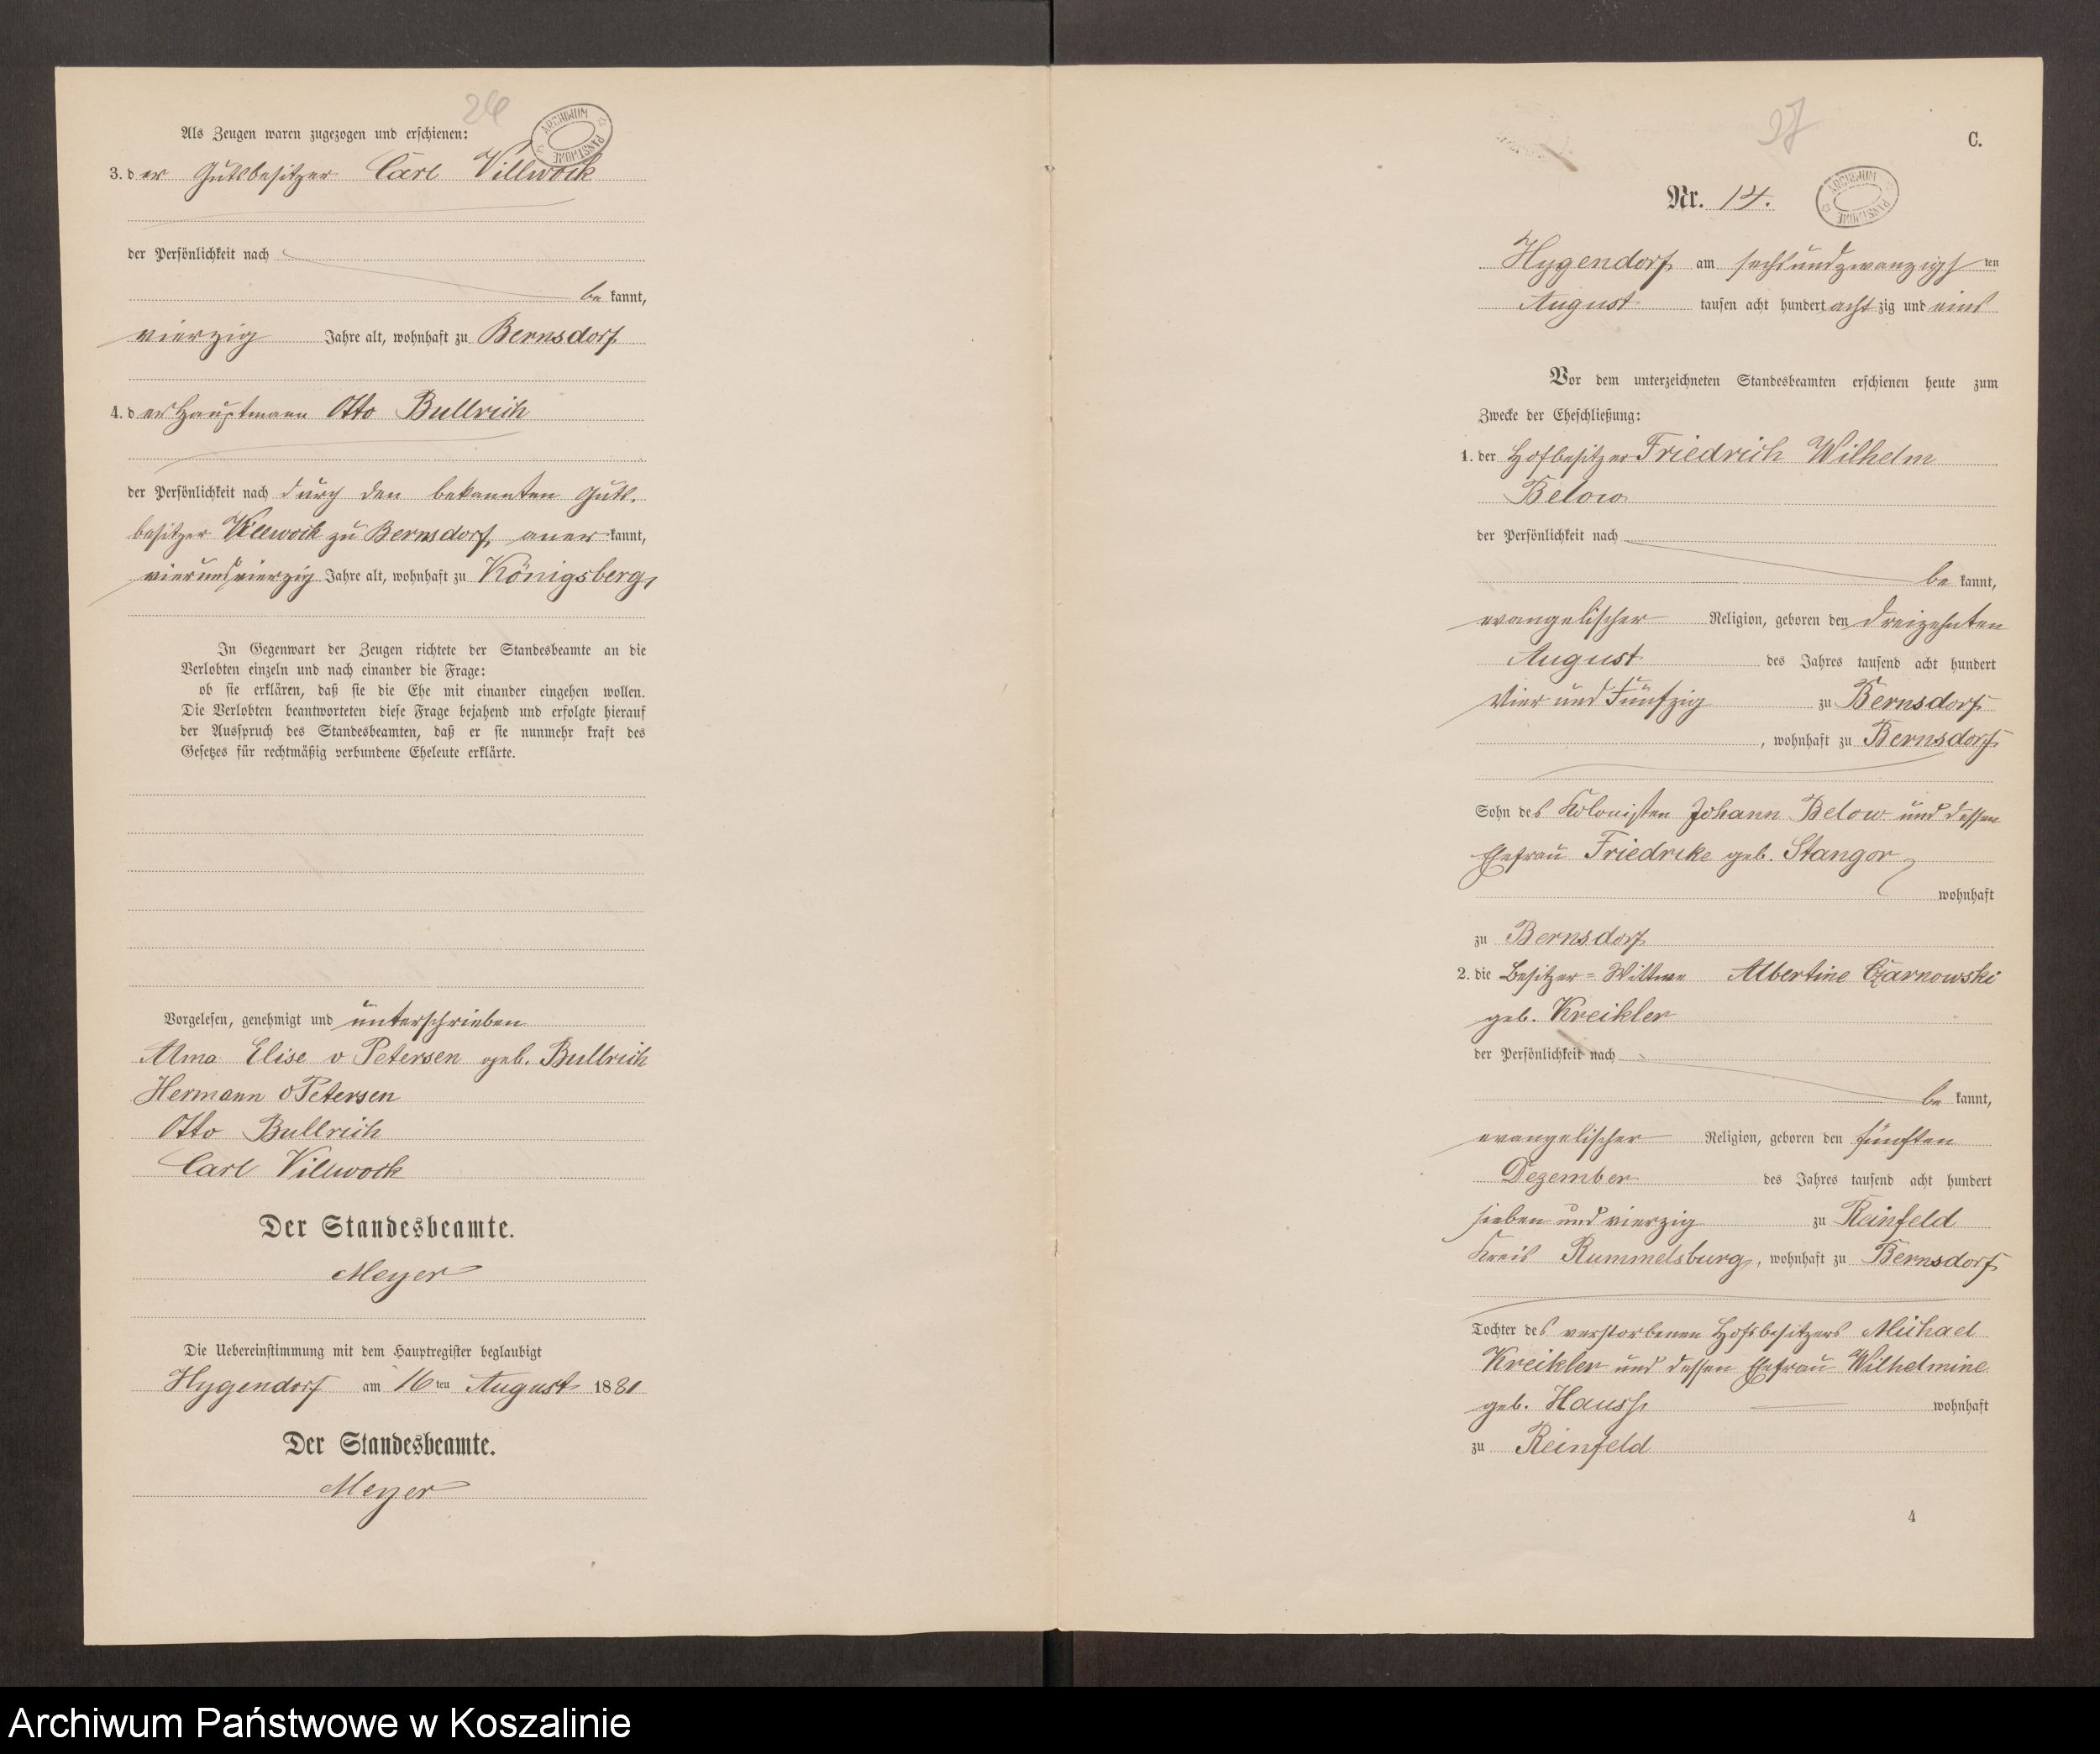 26
Als Zeugen waren zugezogen und erschienen:
ARCHIWUM PAŃSTWOWE
3. der Gutsbesitzer Carl Villwock
der Persönlichkeit nach
be kannt,
vierzig Jahre alt, wohnhaft zu Bernsdorf
4. der Hauptmann Otto Bullrich
der Persönlichkeit nach durch den bekannten Guts-
besitzer Villwock zu Bernsdorf, aner kannt,
vierundvierzig Jahre alt, wohnhaft zu Königsberg,
In Gegenwart der Zeugen richtete der Standesbeamte an die
Verlobten einzeln und nach einander die Frage:
ob sie erklären, daß sie die Ehe mit einander eingehen wollen.
Die Verlobten beantworteten diese Frage bejahend und erfolgte hierauf
der Ausspruch des Standesbeamten, daß er sie nunmehr kraft des
Gesetzes für rechtmäßig verbundene Eheleute erklärte.
Vorgelesen, genehmigt und unterschrieben
Alma Elise v Petersen geb. Bullrich
Hermann v Petersen
Otto Bullrich
Carl Villwock
Der Standesbeamte.
Meyer
Die Uebereinstimmung mit dem Hauptregister beglaubigt
Hygendorf am 16 ten August 1881
Der Standesbeamte.
Meyer
27
C.
Nr. 14.
ARCHIWUM PAŃSTWOWE
Hygendorf am sechsundzwanzigsten
August tausen acht hundert achtzig und eins
Vor dem unterzeichneten Standesbeamten erschienen heute zum
Zwecke der Eheschließung:
1. der Hofbesitzer Friedrich Wilhelm
Below
der Persönlichkeit nach
be kannt,
evangelischer Religion, geboren den dreizehnten
August des Jahres tausend acht hundert
vier und fünfzig zu Bernsdorf
, wohnhaft zu Bernsdorf
Sohn des Kolonisten Johann Below und dessen
Ehefrau Friedrike geb. Stangor
wohnhaft
zu Bernsdorf
2. die Besitzer=Wittwe Albertine Czarnowski
geb. Kreikler
der Persönlichkeit nach
be kannt,
evangelischer Religion, geboren den fünften
Dezember des Jahres tausend acht hundert
sieben und vierzig zu Reinfeld
Kreis Rummelsburg, wohnhaft zu Bernsdorf
Tochter des verstorbenen Hofbesitzers Michael
Kreikler und dessen Ehefrau Wilhelmine
geb. Hauss wohnhaft
zu Reinfeld
4
Archiwum Państwowe w Koszalinie